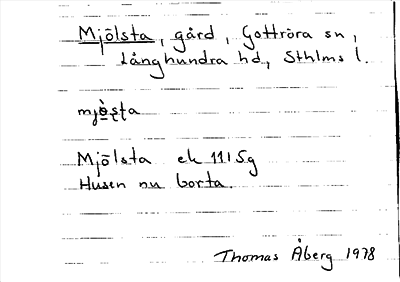 Mjölsta, gård, Gottröra sn,
Långhundra hd, Sthlms l.
Mjölsta ek 11I5g
Husen nu borta.
Thomas Åberg 1978